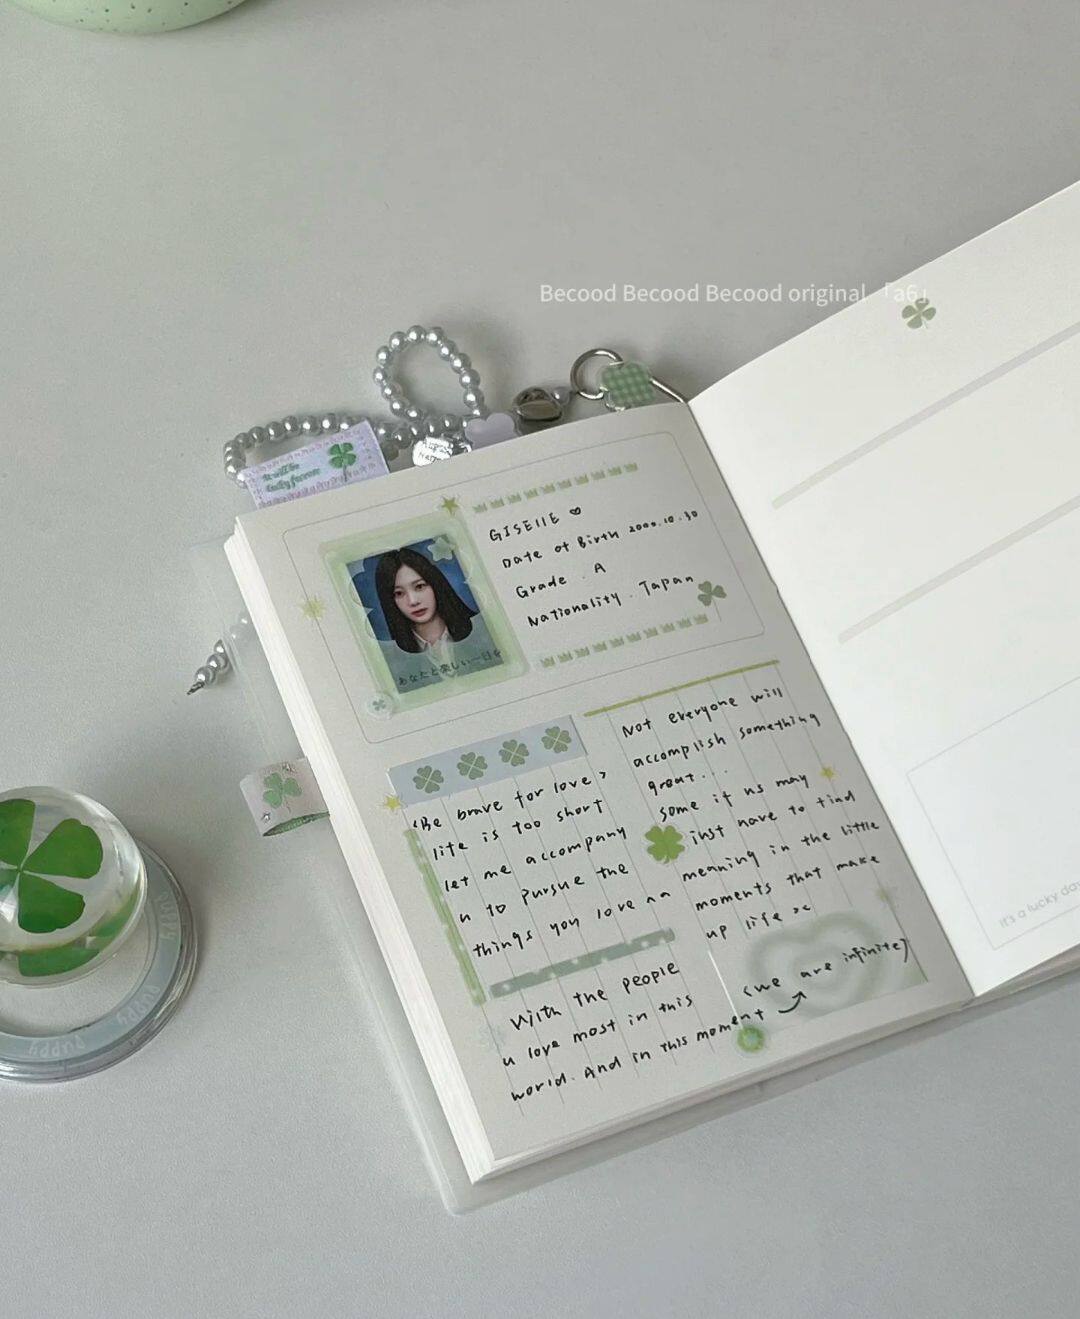 Becood Becood Becood original 「a6」
It will be
lucky forever
GISElle ♡
Date of Birth 2000.10.30
Grade . A
Nationality . Japan
あなたと楽しい一日を
<Be brave for love>
life is too short
let me accompany
u to pursue the
things you love ^^
With the people
u love most in this
world. And in this moment
Not everyone will
accomplish something
great...
some if us may
just have to find
meaning in the little
moments that make
up life ><
<we are infinite>
It's a lucky day
puppy
puppy